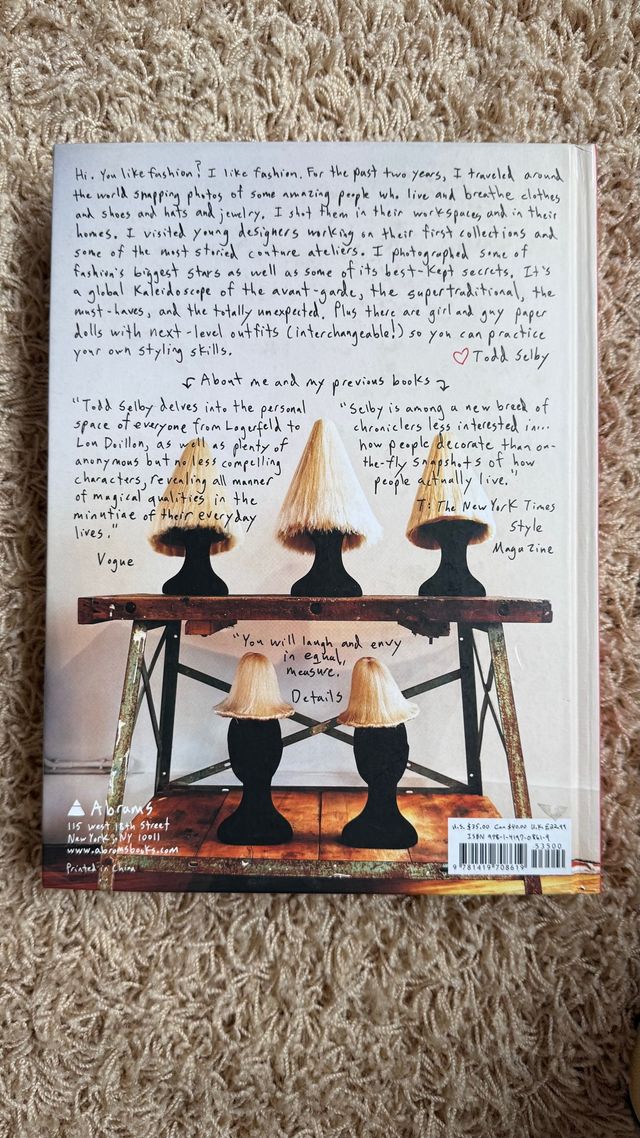 Hi. You like fashion? I like fashion. For the past two years, I traveled around
the world snapping photos of some amazing people who live and breathe clothes
and shoes and hats and jewelry. I shot them in their workspaces and in their
homes. I visited young designers working on their first collections and
some of the most storied couture ateliers. I photographed some of
fashion's biggest stars as well as some of its best-kept secrets. It's
a global kaleidoscope of the avant-garde, the supertraditional, the
must-haves, and the totally unexpected. Plus there are girl and guy paper
dolls with next-level outfits (interchangeable!) so you can practice
your own styling skills.
Todd Selby
About me and my previous books
"Todd Selby delves into the personal
space of everyone from Lagerfeld to
Lou Doillon, as well as plenty of
anonymous but no less compelling
characters, revealing all manner
of magical qualities in the
minutiae of their everyday
lives."
Vogue
"Selby is among a new breed of
chroniclers less interested in...
how people decorate than on-
the-fly snapshots of how
people actually live."
T: The New York Times
Style
Magazine
"You will laugh and envy
in equal
measure.
Details
Abrams
115 West 18th Street
New York, NY 10011
www.abramsbooks.com
Printed in China
U.S. $35.00 Can. $40.00 U.K. £22.99
ISBN 978-1-4197-0861-9
53500
9 781419 708619